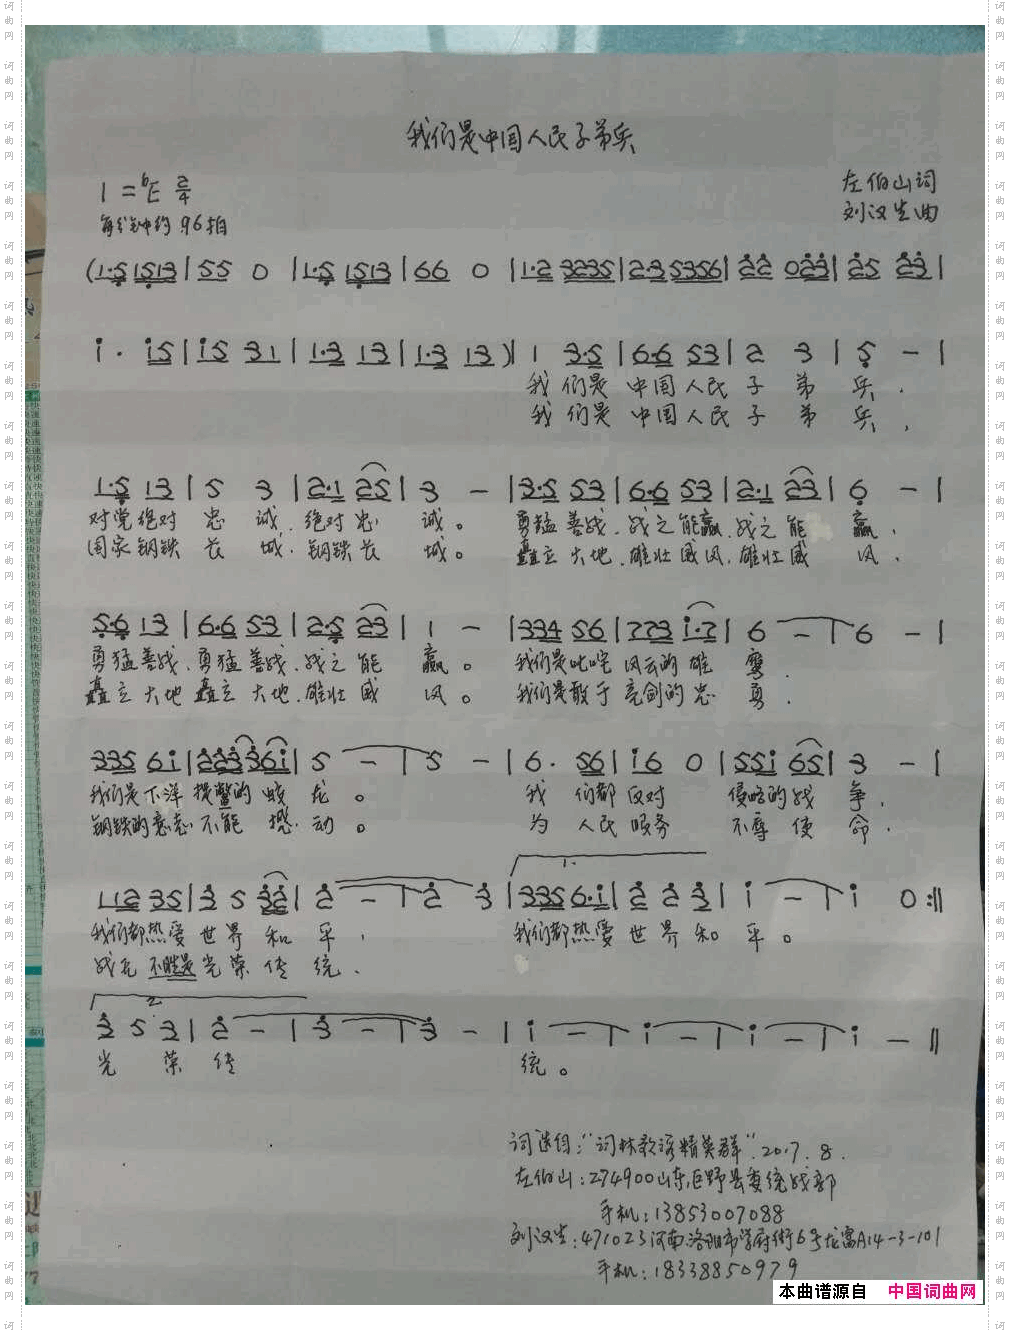 我们是中国人民子弟兵
1=bE 2/4
左伯山词
每分钟约96拍
刘汉生曲
(1·5 1513|55 0|1·5 1513|66 0|1·2 3235|2·3 5356|22 023|25 23|
i· i5|i5 31|1·3 13|1·3 13)|1 3·5|6·6 53|2 3|5 -|
我们是中国人民子弟兵,
我们是中国人民子弟兵,
1·5 13|5 3|2·1 25|3 -|3·5 53|6·6 53|2·1 23|6 -|
对党绝对忠诚,绝对忠诚。勇猛善战,战之能赢,战之能赢,
国家钢铁长城,钢铁长城。矗立大地,雄壮威风,雄壮威风,
5·6 13|6·6 53|2·5 23|1 -|334 56|223 i·2|6 -|6 -|
勇猛善战,勇猛善战,战之能赢。我们是叱咤风云的雄鹰,
矗立大地,矗立大地,雄壮威风。我们是敢于亮剑的忠勇,
335 6i|223 36i|5 -|5 -|6· 56|i6 0|55i 65|3 -|
我们是下洋捉鳖的蛟龙。我们都反对侵略的战争,
钢铁的意志不能撼动。为人民服务不辱使命,
112 35|3 5 32|2 -|2 3|335 6·i|2 2 3|i -|i 0:‖
1.
我们都热爱世界和平,我们都热爱世界和平。
战无不胜是光荣传统,
2.
3 5 3|2 -|3 -|3 -|i -|i -|i -|i -‖
光荣传统。
词选自:"词林歌海精英群".2017.8.
左伯山:274900山东巨野县委统战部
手机:13853007088
刘汉生:471023河南洛阳市学府街6号龙富A14-3-101
手机:18338850979
本曲谱源自 中国词曲网